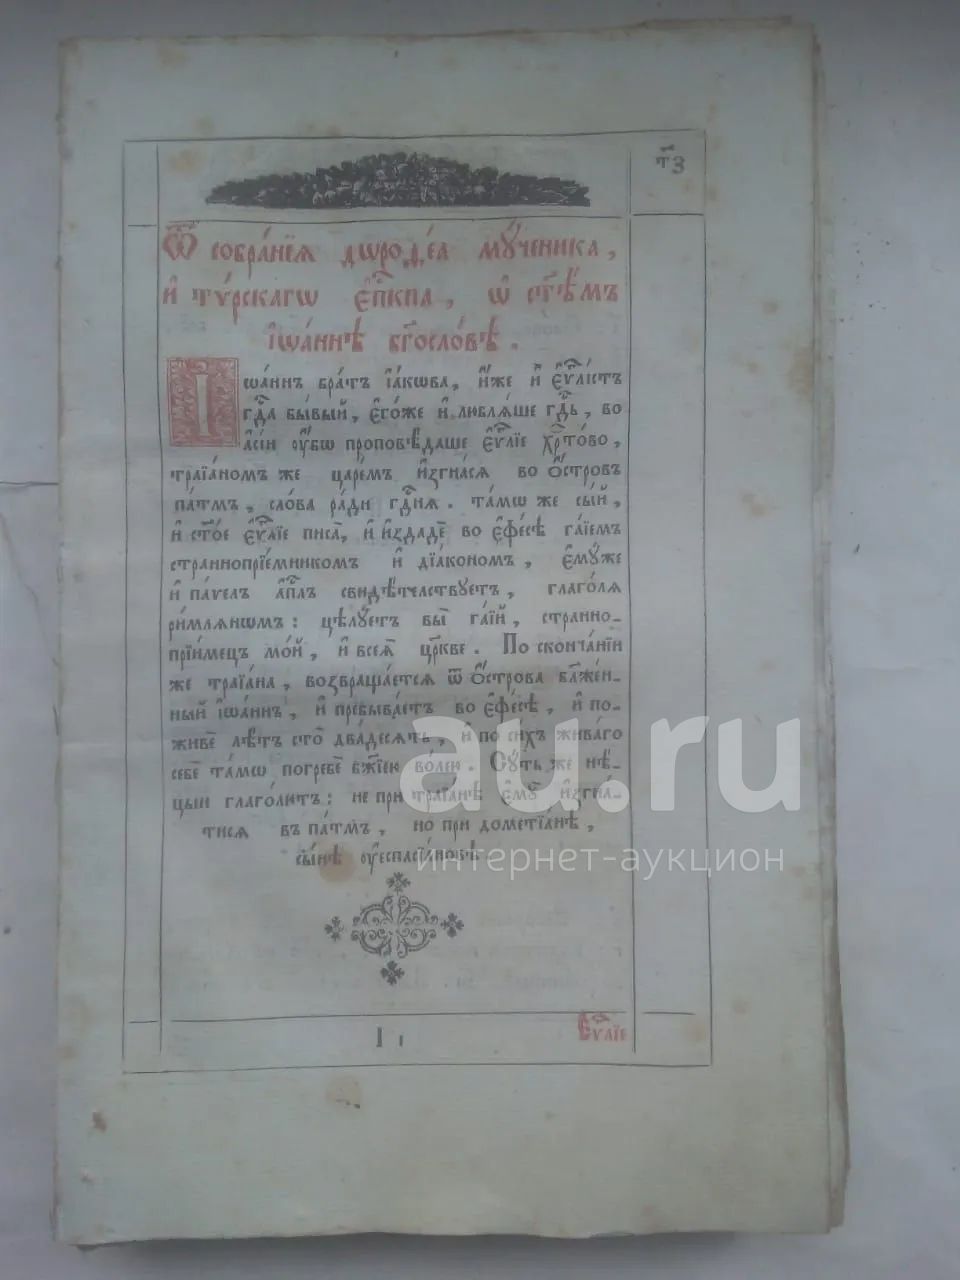 т҃з
Ѿ собра́нїѧ дѡроѳе́а мꙋ́ченика,
и҆ тѵ́рскагѡ є҆пⷭ҇кпа, ѡ҆ ст҃ѣ́мъ
і҆ѡа́ннѣ бг҃осло́вѣ.
І҆ѡа́ннъ бра́тъ і҆а́кѡва, и҆́же и҆ є҆ѵⷢ҇лі́стъ
гдⷭ҇а бы́вый, є҆го́же и҆ люблѧ́ше гдⷭ҇ь, во
а҆сі́и ᲂу҆́бѡ проповѣ́даше є҆ѵⷢ҇лїе хрⷭ҇то́во,
траїа́номъ же царе́мъ и҆згна́сѧ во ѻ҆́стровъ
па́тмъ, сло́ва ра́ди гдⷭ҇нѧ. та́мѡ же сы́й,
и҆ ст҃о́е є҆ѵⷢ҇лїе писа̀, и҆ и҆здадѐ во є҆фе́сѣ га́їемъ
страннопрїе́мникомъ и҆ дїа́кономъ, є҆мꙋ́же
и҆ па́ѵелъ а҆пⷭ҇лъ свидѣ́телствꙋетъ, глаго́лѧ
ри́млѧнѡмъ: цѣлꙋ́етъ вы̀ га́їй, странно-
прїи́мецъ мо́й, и҆ всеѧ̀ цр҃кве. По сконча́нїи
же траїа́на, возвраща́етсѧ ѿ ѻ҆́строва бл҃же́н-
ный і҆ѡа́ннъ, и҆ пребыва́етъ во є҆фе́сѣ, и҆ по-
живѐ лѣ́тъ сто̀ два́десѧть, и҆ по си́хъ жива́го
себѐ та́мѡ погребѐ бж҃їею во́лею. Сꙋ́ть же нѣ́-
цыи глаго́лютъ: не при траїа́нѣ є҆мꙋ̀ и҆згна́-
тисѧ въ па́тмъ, но при дометїа́нѣ,
сы́нѣ ᲂу҆еспасїа́новѣ.
І і
Є҆ѵⷢ҇лїе
au.ru
интернет-аукцион